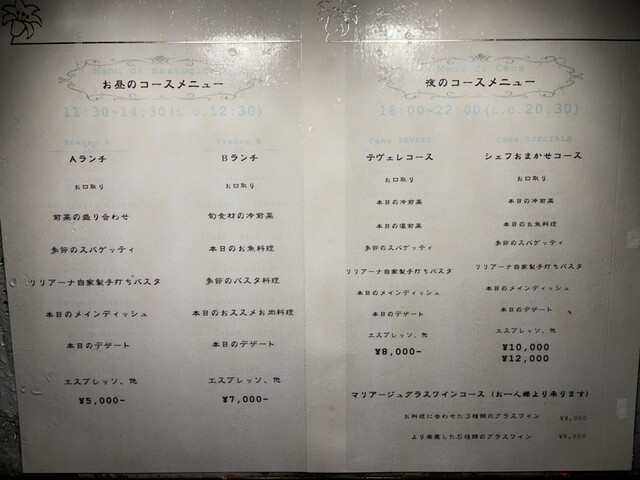 Menu di mezzogiorno
お昼のコースメニュー
11:30~14:30(L.o.12:30)
Pranzo A
Aランチ
お口取り
前菜の盛り合わせ
季節のスパゲッティ
リリアーナ自家製手打ちパスタ
本日のメインディッシュ
本日のデザート
エスプレッソ、他
¥5,000-
Pranzo B
Bランチ
お口取り
旬食材の冷前菜
本日のお魚料理
季節のパスタ料理
本日のおススメお肉料理
本日のデザート
エスプレッソ、他
¥7,000-
Menu di Cena
夜のコースメニュー
18:00~22:00(L.o.20:30)
Cena TEVERE
テヴェレコース
お口取り
本日の冷前菜
本日の温前菜
季節のスパゲッティ
リリアーナ自家製手打ちパスタ
本日のメインディッシュ
本日のデザート
エスプレッソ、他
¥8,000-
Cena SPECIALE
シェフおまかせコース
お口取り
本日の冷前菜
本日のお魚料理
季節のスパゲッティ
リリアーナ自家製手打ちパスタ
本日のメインディッシュ
本日のデザート
エスプレッソ、他
¥10,000
¥12,000
マリアージュグラスワインコース(お一人様より承ります)
お料理に合わせた3種類のグラスワイン ¥4,000
より厳選した5種類のグラスワイン